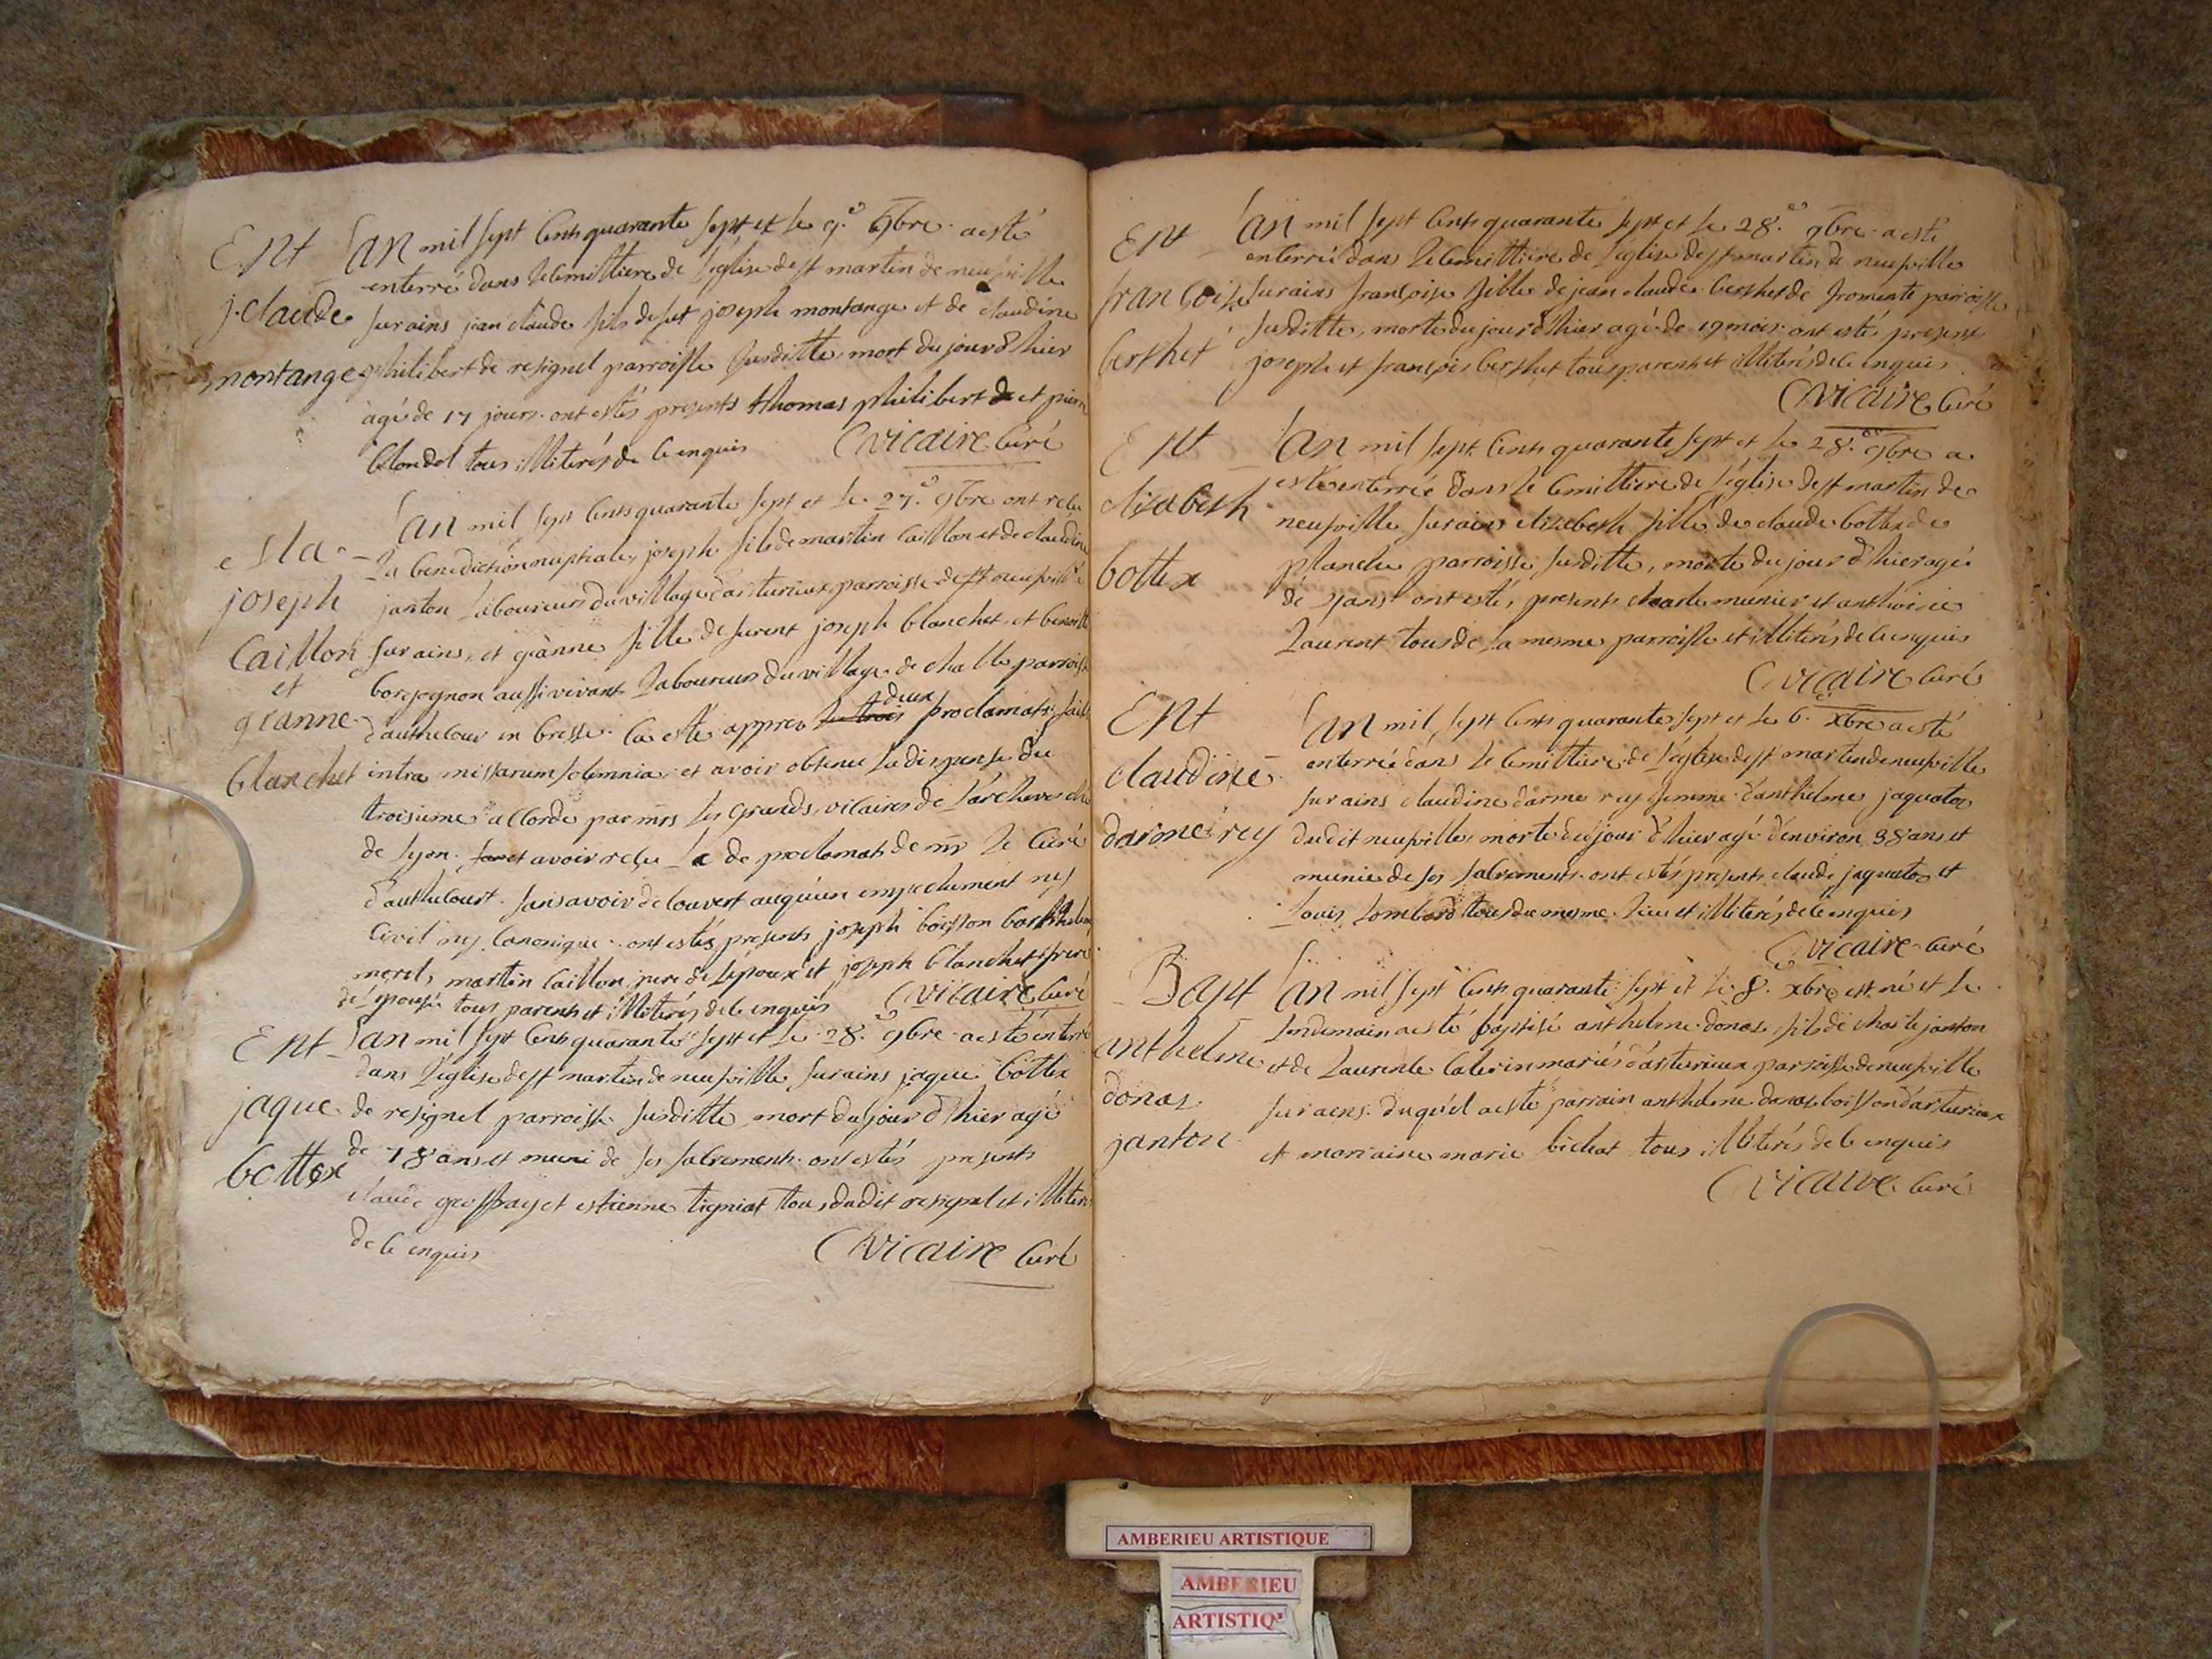 Ent
j. claude
montange
L'an mil sept cents quarante sept et le 9.e 9bre a esté
enterré dans le cemittiere de l'église de st martin de neufville
sur ains jean claude fils de fut joseph montange et de claudine
philibert de resignel parroisse susditte mort du jour d'hier
agé de 17 jours. ont estés presents thomas philibert et pierre
blondel tous illiterés de ce enquis Cvicaire curé
Ma.
joseph
caillon
et
granne
blanchet
L'an mil sept cents quarante sept et le 27.e 9bre ont reçu
la benediction nuptiale, joseph fils de martin caillon et de claudine
janton laboureurs du village d'arturieux parroisse de st neufville
sur ains, et granne fille de furent joseph blanchet et benoitte
borgognon aussi vivant laboureurs du village de challe parroisse
d'authecour en bresse. ce a esté appres les trois deux proclamats faits
intra missarum solemnia, et avoir obtenu la dispense du
troisieme accordé par mrs les grands vicaires de l'archeveché
de lyon. et avoir reçu la de proclamats de mr le curé
d'authecourt. sans avoir decouvert auqu'un empechement ny
civil ny canonique. ont estés presents joseph boisson barthelemy
morel, martin caillon pere de l'epoux et joseph blanchet frere
de l'epouse tous parents et illiterés de ce enquis Cvicaire curé
Ent
jaque
bottex
L'an mil sept cents quarante sept et le 28.e 9bre a esté enterré
dans l'eglise de st martin de neufville sur ains jaque bottex
de resignel parroisse susditte mort du jour d'hier agé
de 78 ans et muni de ses sacrements. ont estés presents
claude geoffray et estienne tigniat tous dudit resignel et illiterés
de ce enquis Cvicaire curé
Ent
francoise
berthet
L'an mil sept cents quarante sept et le 28.e 9bre a esté
enterrée dans le cemittiere de l'église de st martin de neufville
sur ains françoise fille de jean claude berthet de fromente parroisse
susditte, morte du jour d'hier agé de 19 mois. ont estés presents
joseph et françois berthet tous parents et illiterés de ce enquis
Cvicaire curé
Ent
elisabeth
bottex
L'an mil sept cents quarante sept et le 28.e 9bre a
esté enterrée dans le cemittiere de l'église de st martin de
neufville sur ains elizabeth fille de claude bottex de
planche parroisse susditte, morte du jour d'hier agé
de ans ont estés presents charle munier et anthoine
laurent tous de la mesme parroisse et illiterés de ce enquis
Cvicaire curé
Ent
claudine
darmeirey
L'an mil sept cents quarante sept et le 6. xbre a esté
enterrée dans le cemittiere de l'eglise de st martin de neufville
sur ains claudine darme rey femme d'anthelme jaqueto
dudit neufville morte du jour d'hier agé d'environ 38 ans et
munie de ses sacrements. ont estés presents claude jaqueto et
louis lombard tous du mesme lieu et illiterés de ce enquis
Cvicaire curé
Bapt
anthelme
donas
janton
L'an mil sept cents quarante sept et le 8. xbre est né et le
lendemain a esté baptisé anthelme donas, fils de charle janton
et de laurente caterin mariés d'arturieux parroisse de neufville
sur ains. duquel a esté parrain anthelme donas boisson d'arturieux
et marraine marie bichat tous illiterés de ce enquis
Cvicaire curé
AMBERIEU ARTISTIQUE
AMBERIEU
ARTISTIQ